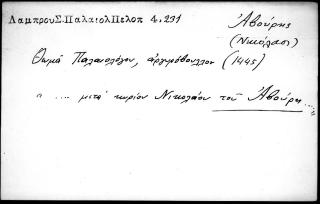 ΛαμπρουΣ.ΠαλαιολΠελοπ 4.231
Ἀβούρης
(Νικόλαος)
Θωμᾶ Παλαιολόγου, ἀργυρόβουλλον (1445)
" .... μετὰ κυρίου Νικολάου τοῦ Ἀβούρη....